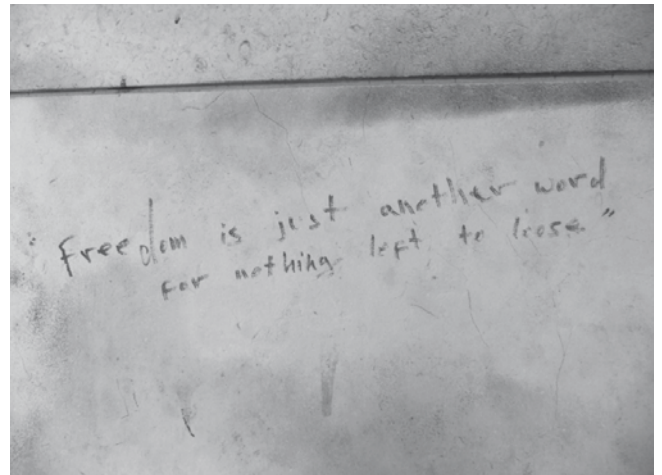 "Freedom is just another word
for nothing left to loose"